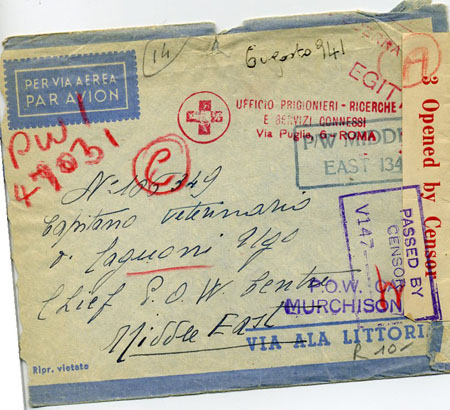 14
Agosto 941
PER VIA AEREA
PAR AVION
EGIT
UFFICIO PRIGIONIERI - RICERCHE
E SERVIZI CONNESSI
Via Puglie, 6 - ROMA
A
3 Opened by Censor
PW1
47031
C
P/W MIDD
EAST 134
Capitano Veterinario
Ugo
Chief P.O.W. Centre
Middle East
PASSED BY
CENSOR
V147
P.O.W.
MURCHISON
VIA ALA LITTORI
R 10-
Ripr. vietata